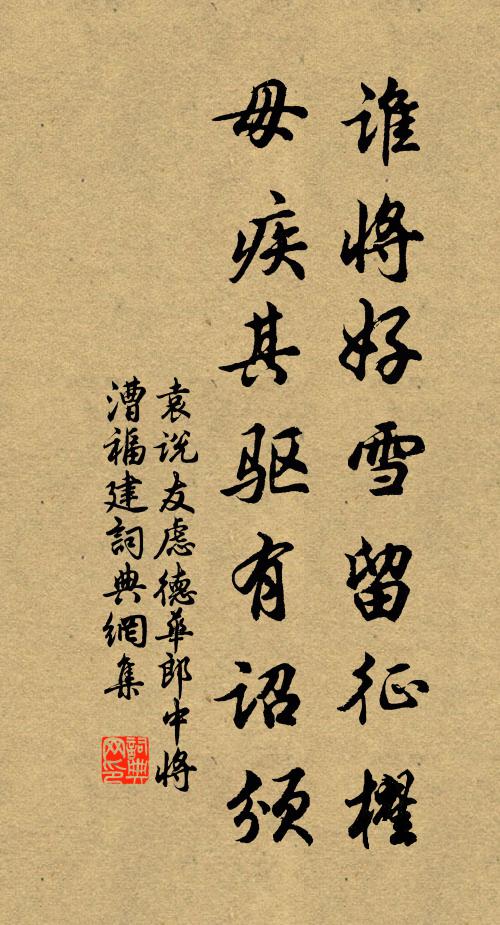 谁将好雪留征櫂
毋疾其驱有诏颁
袁说友虑德华郎中将
漕福建詞典網集
詞典网印